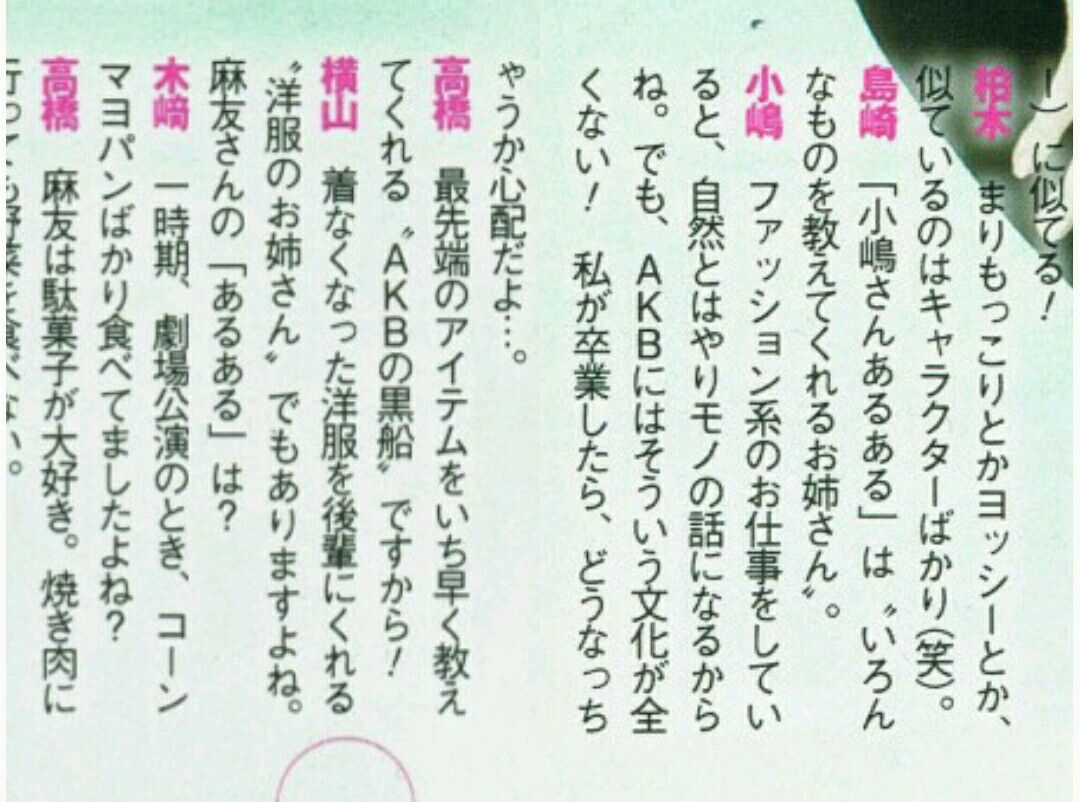 ー）に似てる！
柏木　まりもっこりとかヨッシーとか、
似ているのはキャラクターばかり（笑）。
島崎　「小嶋さんあるある」は〝いろん
なものを教えてくれるお姉さん〟。
小嶋　ファッション系のお仕事をしてい
ると、自然とはやりモノの話になるから
ね。でも、AKBにはそういう文化が全
くない！　私が卒業したら、どうなっち
ゃうか心配だよ…。
高橋　最先端のアイテムをいち早く教え
てくれる〝AKBの黒船〟ですから！
横山　着なくなった洋服を後輩にくれる
〝洋服のお姉さん〟でもありますよね。
麻友さんの「あるある」は？
木﨑　一時期、劇場公演のとき、コーン
マヨパンばかり食べてましたよね？
高橋　麻友は駄菓子が大好き。焼き肉に
行っても野菜を食べない。